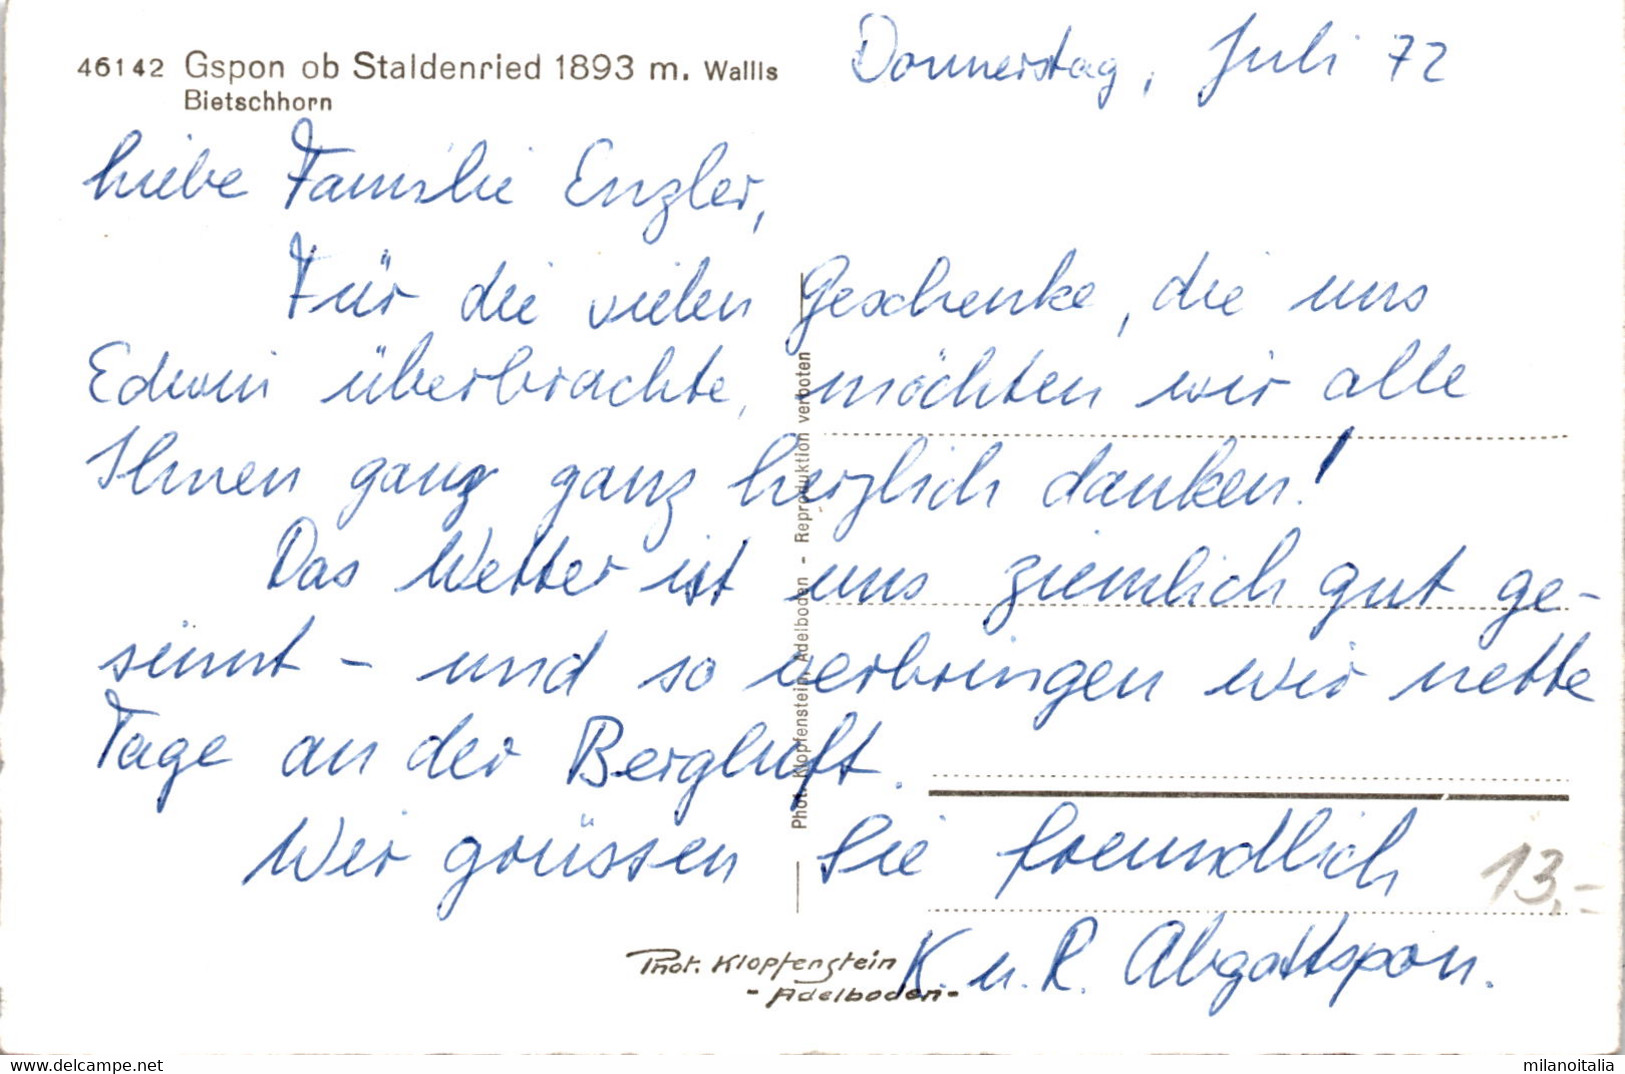 46142 Gspon ob Staldenried 1893 m. Wallis
Bietschhorn
Donnerstag, Juli 72
Liebe Familie Enzler,
Für die vielen Geschenke, die uns
Edwin überbrachte, möchten wir alle
Ihnen ganz ganz herzlich danken!
Das Wetter ist uns ziemlich gut ge-
sinnt - und so verbringen wir nette
Tage an der Bergluft.
Wir grüssen Sie freundlich
K. u. R. Abgottspon.
13,-
Phot. Klopfenstein, Adelboden - Reproduktion verboten
Phot. Klopfenstein
- Adelboden -
www.delcampe.net
milanoitalia